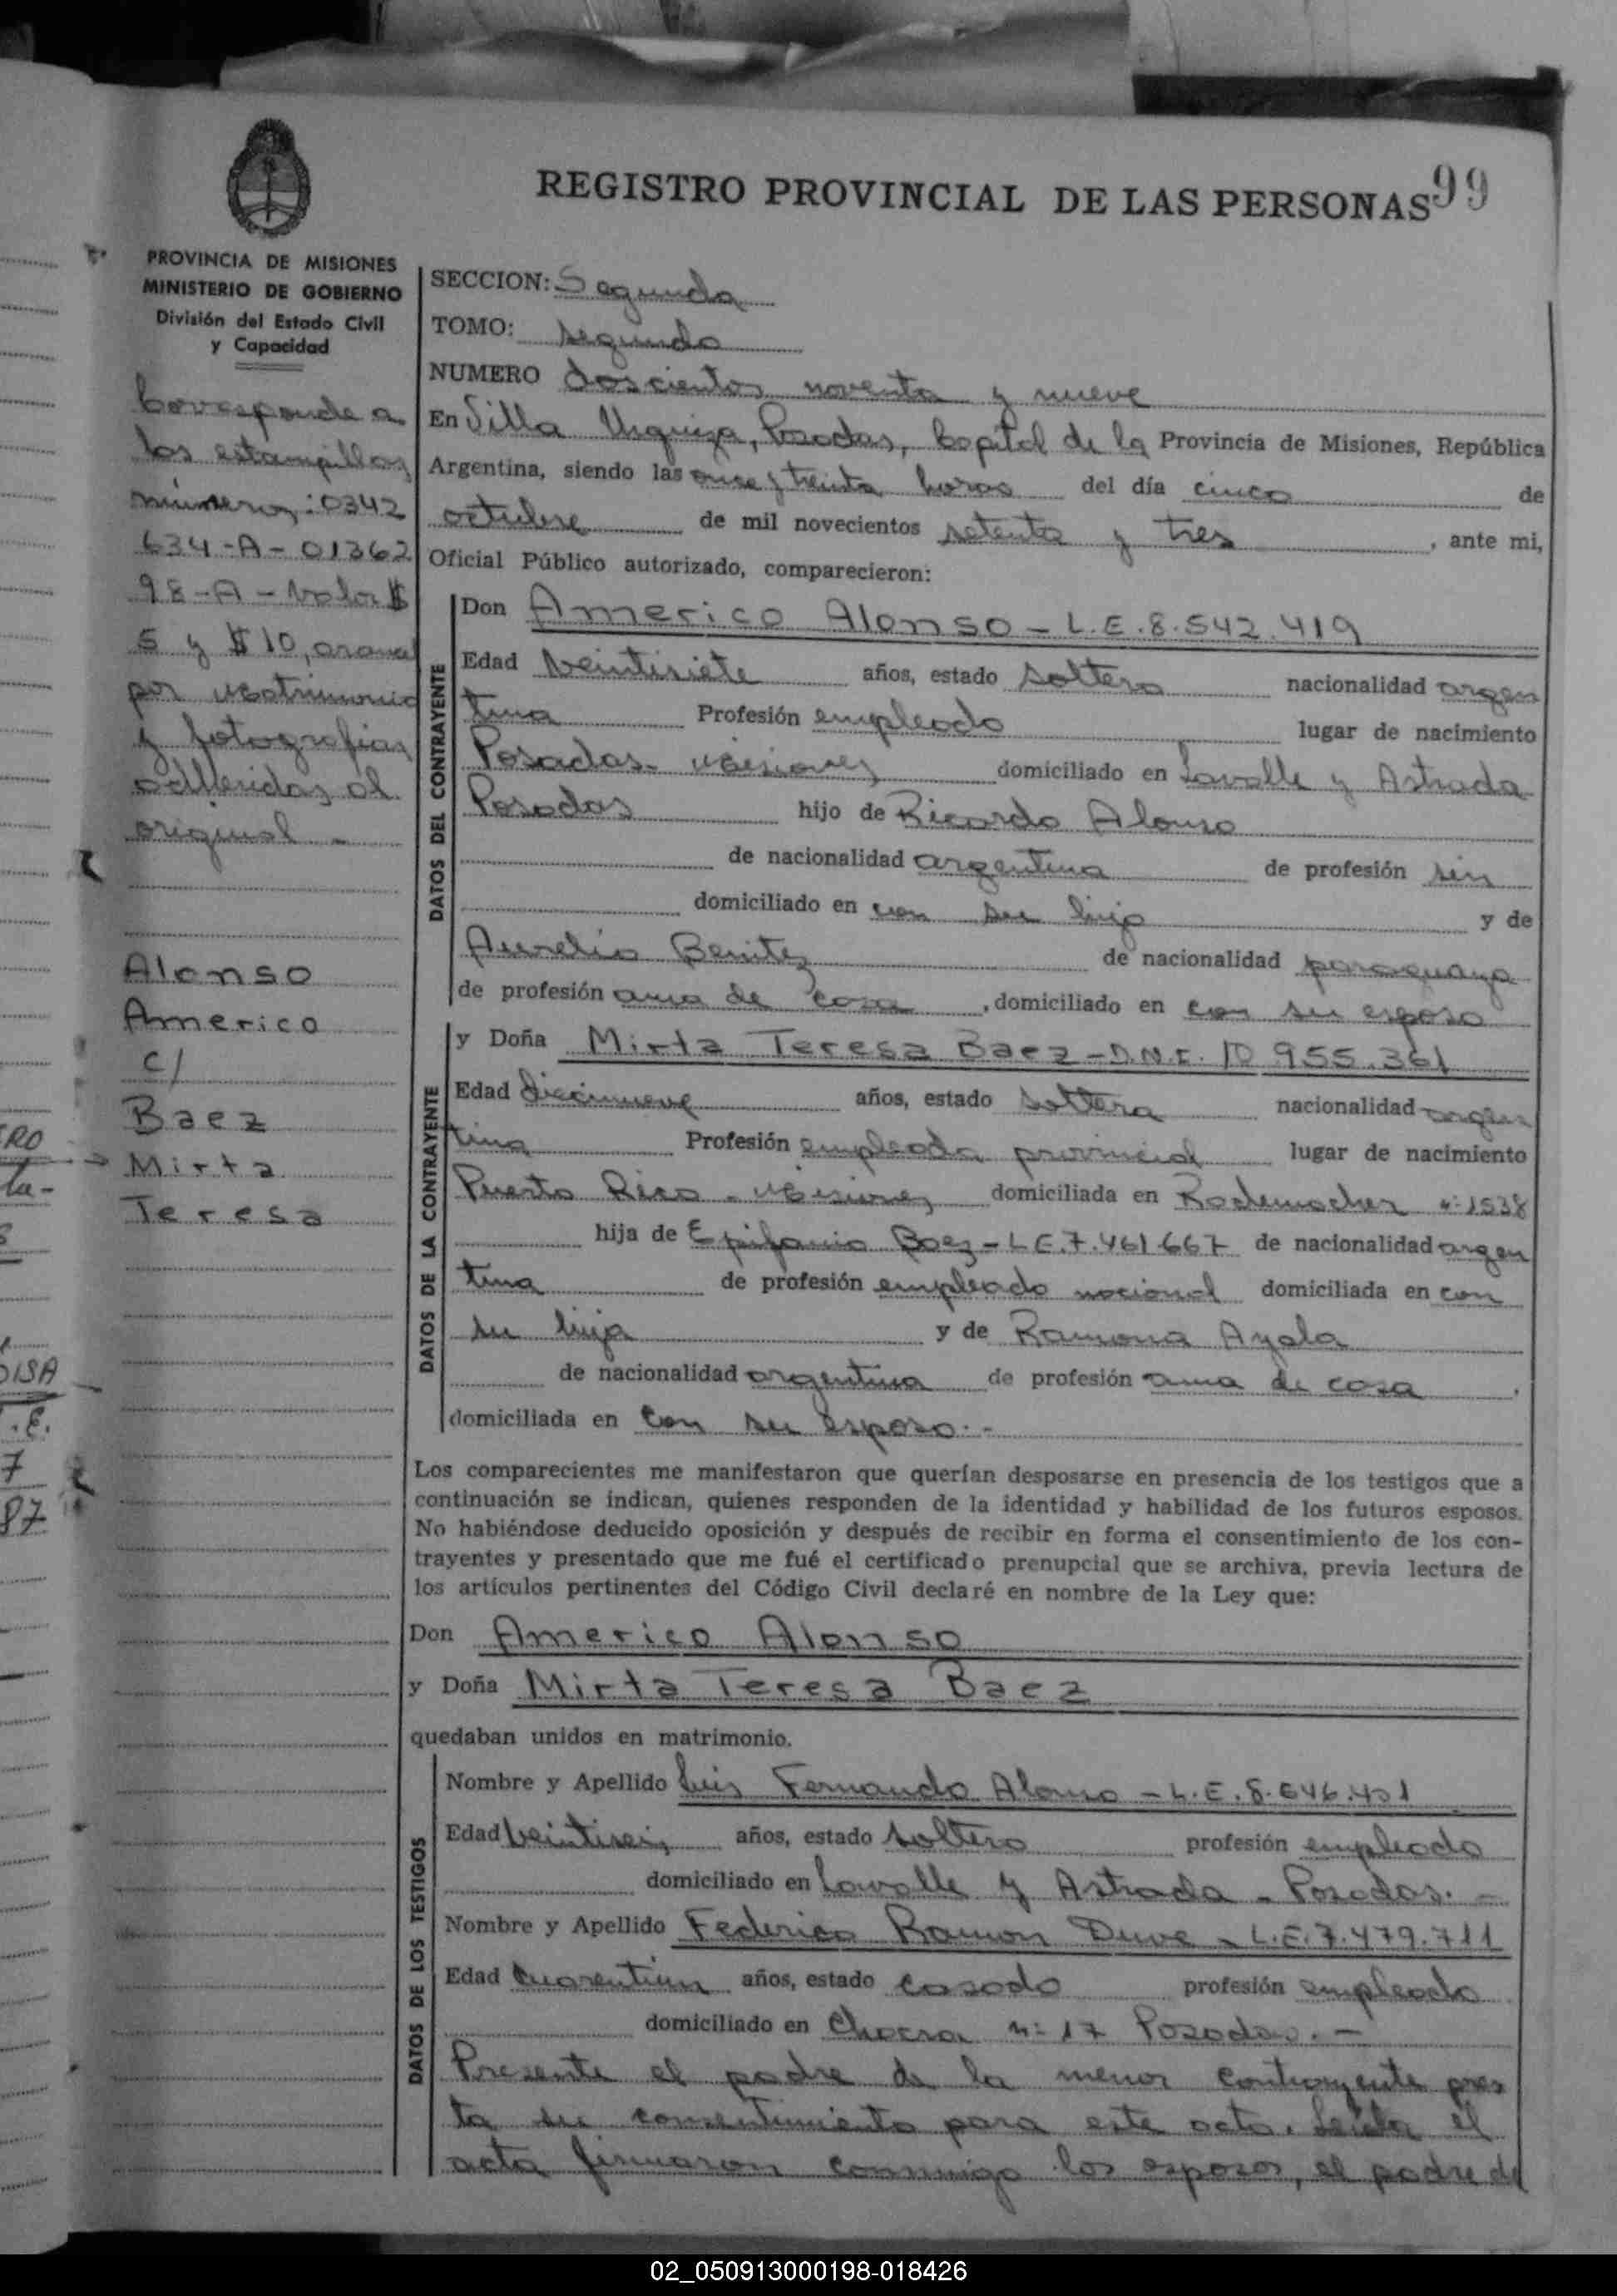 REGISTRO PROVINCIAL DE LAS PERSONAS 99
PROVINCIA DE MISIONES
MINISTERIO DE GOBIERNO
División del Estado Civil
y Capacidad
Corresponde a
los estampillas
números: 0342
634-A-01362
98-A-Valor $
5 y $10, arancel
por matrimonio
y fotografias
adheridas al
original -
Alonso
Americo
c/
Baez
Mirta
Teresa
SECCION: Segunda
TOMO: segundo
NUMERO doscientos noventa y nueve
En Villa Urquiza, Posadas, Capital de la Provincia de Misiones, República
Argentina, siendo las once y treinta horas del día cinco de
octubre de mil novecientos setenta y tres, ante mi,
Oficial Público autorizado, comparecieron:
DATOS DEL CONTRAYENTE
Don Americo Alonso - L.E. 8.542.419
Edad veintisiete años, estado soltero nacionalidad argen
tina Profesión empleado lugar de nacimiento
Posadas - Misiones domiciliado en Lavalle y Astrada
Posadas hijo de Ricardo Alonso
de nacionalidad argentina de profesión sin
domiciliado en con su hijo y de
Aurelia Benitez de nacionalidad paraguaya
de profesión ama de casa, domiciliado en con su esposo
DATOS DE LA CONTRAYENTE
y Doña Mirta Teresa Baez - D.N.I. 10 955.361
Edad diecinueve años, estado soltera nacionalidad argen
tina Profesión empleada provincial lugar de nacimiento
Puerto Rico - Misiones domiciliada en Rademacher nº 1538
hija de Epifanio Baez - L.E. 7.461 667 de nacionalidad argen
tina de profesión empleado nacional domiciliada en con
su hija y de Ramona Ayala
de nacionalidad argentina de profesión ama de casa,
domiciliada en con su esposo.-
Los comparecientes me manifestaron que querían desposarse en presencia de los testigos que a
continuación se indican, quienes responden de la identidad y habilidad de los futuros esposos.
No habiéndose deducido oposición y después de recibir en forma el consentimiento de los con-
trayentes y presentado que me fué el certificado prenupcial que se archiva, previa lectura de
los artículos pertinentes del Código Civil declaré en nombre de la Ley que:
Don Americo Alonso
y Doña Mirta Teresa Baez
quedaban unidos en matrimonio.
DATOS DE LOS TESTIGOS
Nombre y Apellido Luis Fernando Alonso - L.E. 8.646.401
Edad veintiseis años, estado soltero profesión empleado
domiciliado en Lavalle y Astrada - Posadas.-
Nombre y Apellido Federico Ramon Duve - L.E. 7.479.711
Edad cuarentiún años, estado casado profesión empleado
domiciliado en Chacra nº 17 Posadas.-
Presente el padre de la menor contrayente pres
ta su consentimiento para este acto. Leída el
acta firmaron conmigo los esposos, el padre de
02_050913000198-018426